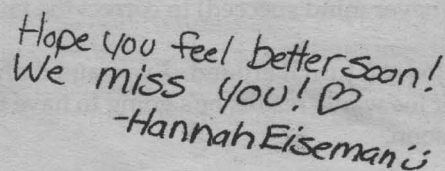 Hope you feel better soon!
We miss you! ♡
-Hannah Eiseman ü